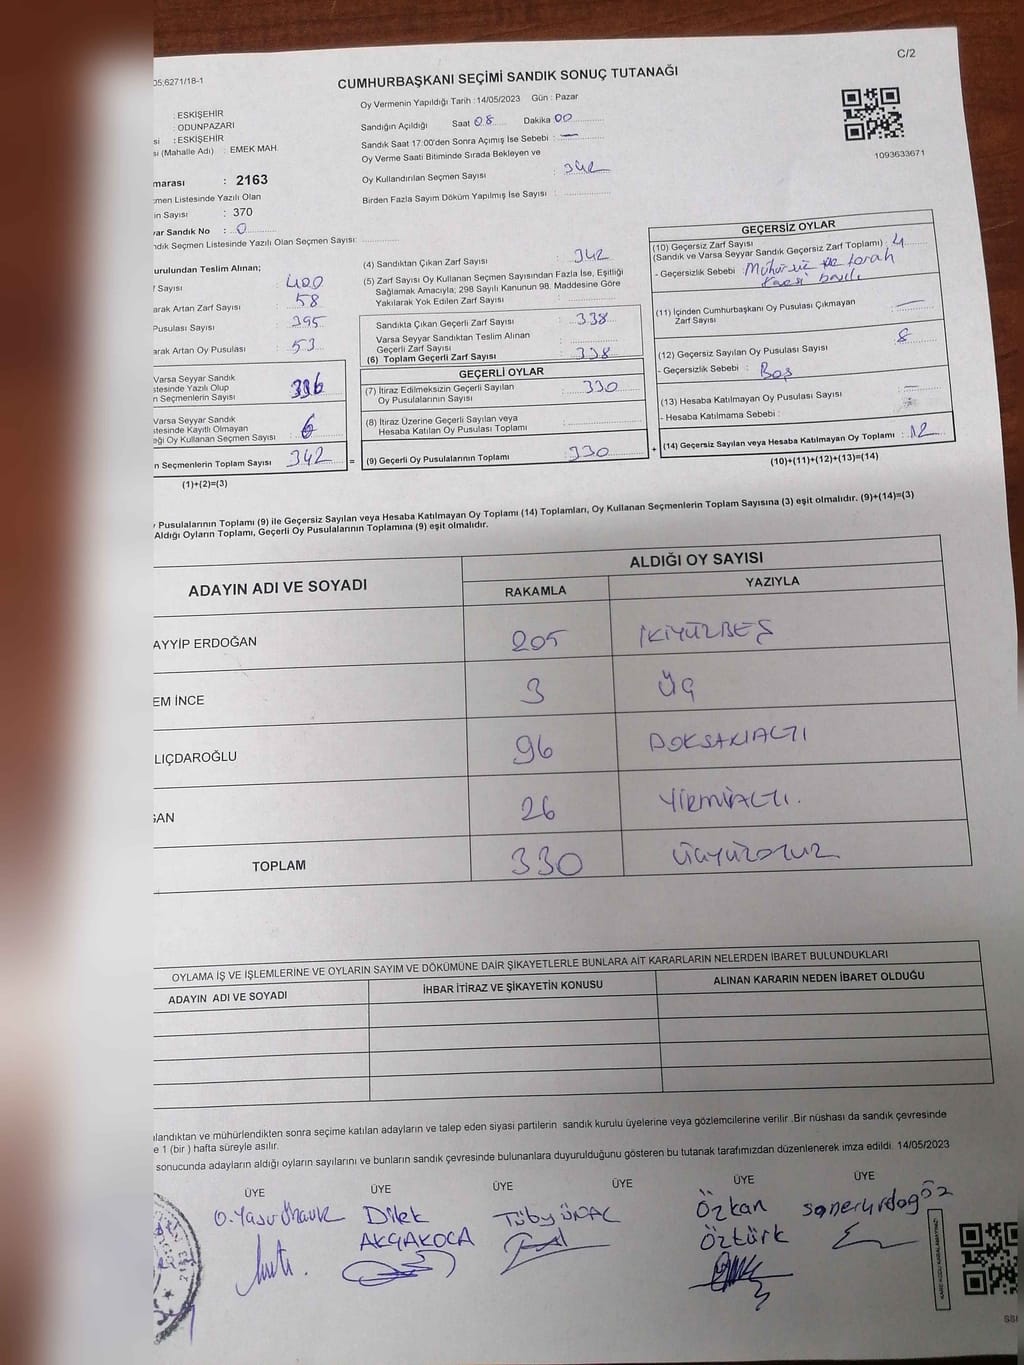 C/2
05:6271/18-1
CUMHURBAŞKANI SEÇİMİ SANDIK SONUÇ TUTANAĞI
: ESKİŞEHİR
: ODUNPAZARI
si : ESKİŞEHİR
si (Mahalle Adı) : EMEK MAH.
marası : 2163
çmen Listesinde Yazılı Olan
in Sayısı : 370
yar Sandık No : 0
ndık Seçmen Listesinde Yazılı Olan Seçmen Sayısı:
Oy Vermenin Yapıldığı Tarih : 14/05/2023 Gün : Pazar
Sandığın Açıldığı Saat 08 Dakika 00
Sandık Saat 17.00'den Sonra Açımış İse Sebebi : —
Oy Verme Saati Bitiminde Sırada Bekleyen ve
Oy Kullandırılan Seçmen Sayısı : 342
Birden Fazla Sayım Döküm Yapılmış İse Sayısı :
1093633671
urulundan Teslim Alınan;
f Sayısı : 400
arak Artan Zarf Sayısı : 58
Pusulası Sayısı : 395
arak Artan Oy Pusulası : 53
Varsa Seyyar Sandık
stesinde Yazılı Olup
n Seçmenlerin Sayısı : 336
Varsa Seyyar Sandık
stesinde Kayıtlı Olmayan
eği Oy Kullanan Seçmen Sayısı : 6
n Seçmenlerin Toplam Sayısı : 342 =
(1)+(2)=(3)
(4) Sandıktan Çıkan Zarf Sayısı : 342
(5) Zarf Sayısı Oy Kullanan Seçmen Sayısından Fazla İse, Eşitliği
Sağlamak Amacıyla; 298 Sayılı Kanunun 98. Maddesine Göre
Yakılarak Yok Edilen Zarf Sayısı :
Sandıkta Çıkan Geçerli Zarf Sayısı : 338
Varsa Seyyar Sandıktan Teslim Alınan
Geçerli Zarf Sayısı :
(6) Toplam Geçerli Zarf Sayısı : 338
GEÇERLİ OYLAR
(7) İtiraz Edilmeksizin Geçerli Sayılan
Oy Pusulalarının Sayısı : 330
(8) İtiraz Üzerine Geçerli Sayılan veya
Hesaba Katılan Oy Pusulası Toplamı :
(9) Geçerli Oy Pusulalarının Toplamı : 330 +
GEÇERSİZ OYLAR
(10) Geçersiz Zarf Sayısı
(Sandık ve Varsa Seyyar Sandık Geçersiz Zarf Toplamı) : 4
- Geçersizlik Sebebi : Mühürsüz
(11) İçinden Cumhurbaşkanı Oy Pusulası Çıkmayan
Zarf Sayısı : —
(12) Geçersiz Sayılan Oy Pusulası Sayısı : 8
- Geçersizlik Sebebi : Boş
(13) Hesaba Katılmayan Oy Pusulası Sayısı : —
- Hesaba Katılmama Sebebi :
(14) Geçersiz Sayılan veya Hesaba Katılmayan Oy Toplamı : 12
(10)+(11)+(12)+(13)=(14)
y Pusulalarının Toplamı (9) ile Geçersiz Sayılan veya Hesaba Katılmayan Oy Toplamı (14) Toplamları, Oy Kullanan Seçmenlerin Toplam Sayısına (3) eşit olmalıdır. (9)+(14)=(3)
Aldığı Oyların Toplamı, Geçerli Oy Pusulalarının Toplamına (9) eşit olmalıdır.
ADAYIN ADI VE SOYADI ALDIĞI OY SAYISI
RAKAMLA YAZIYLA
AYYİP ERDOĞAN 205 İKİYÜZBEŞ
EM İNCE 3 ÜÇ
LIÇDAROĞLU 96 DOKSANALTI
ĞAN 26 YİRMİALTI.
TOPLAM 330 ÜÇYÜZOTUZ
OYLAMA İŞ VE İŞLEMLERİNE VE OYLARIN SAYIM VE DÖKÜMÜNE DAİR ŞİKAYETLERLE BUNLARA AİT KARARLARIN NELERDEN İBARET BULUNDUKLARI
ADAYIN ADI VE SOYADI İHBAR İTİRAZ VE ŞİKAYETİN KONUSU ALINAN KARARIN NEDEN İBARET OLDUĞU
ılandıktan ve mühürlendikten sonra seçime katılan adayların ve talep eden siyasi partilerin sandık kurulu üyelerine veya gözlemcilerine verilir .Bir nüshası da sandık çevresinde
e 1 (bir ) hafta süreyle asılır.
sonucunda adayların aldığı oyların sayılarını ve bunların sandık çevresinde bulunanlara duyurulduğunu gösteren bu tutanak tarafımızdan düzenlenerek imza edildi. 14/05/2023
ÜYE ÜYE ÜYE ÜYE ÜYE ÜYE
Dilek AKÇAKOCA
Özkan Öztürk